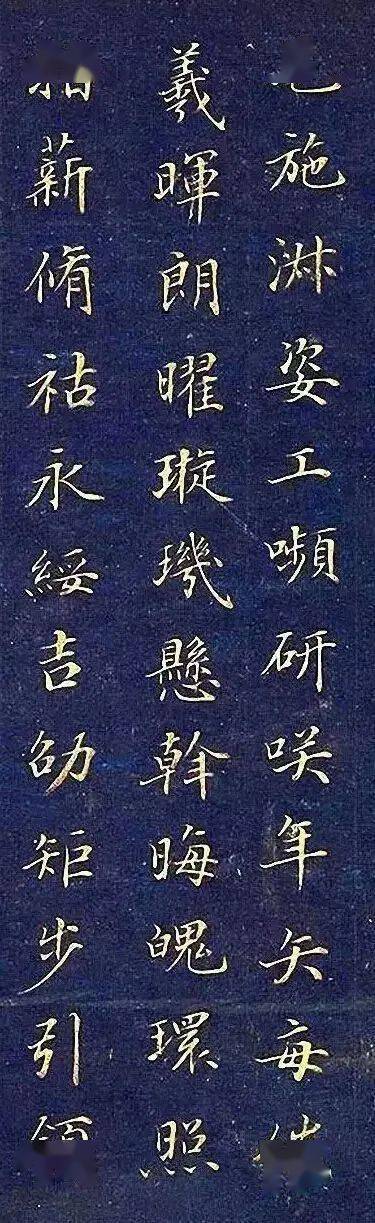 施淑姿工嚬研咲年矢每
羲暉朗曜璇璣懸斡晦魄環照
薪脩祜永綏吉劭矩步引